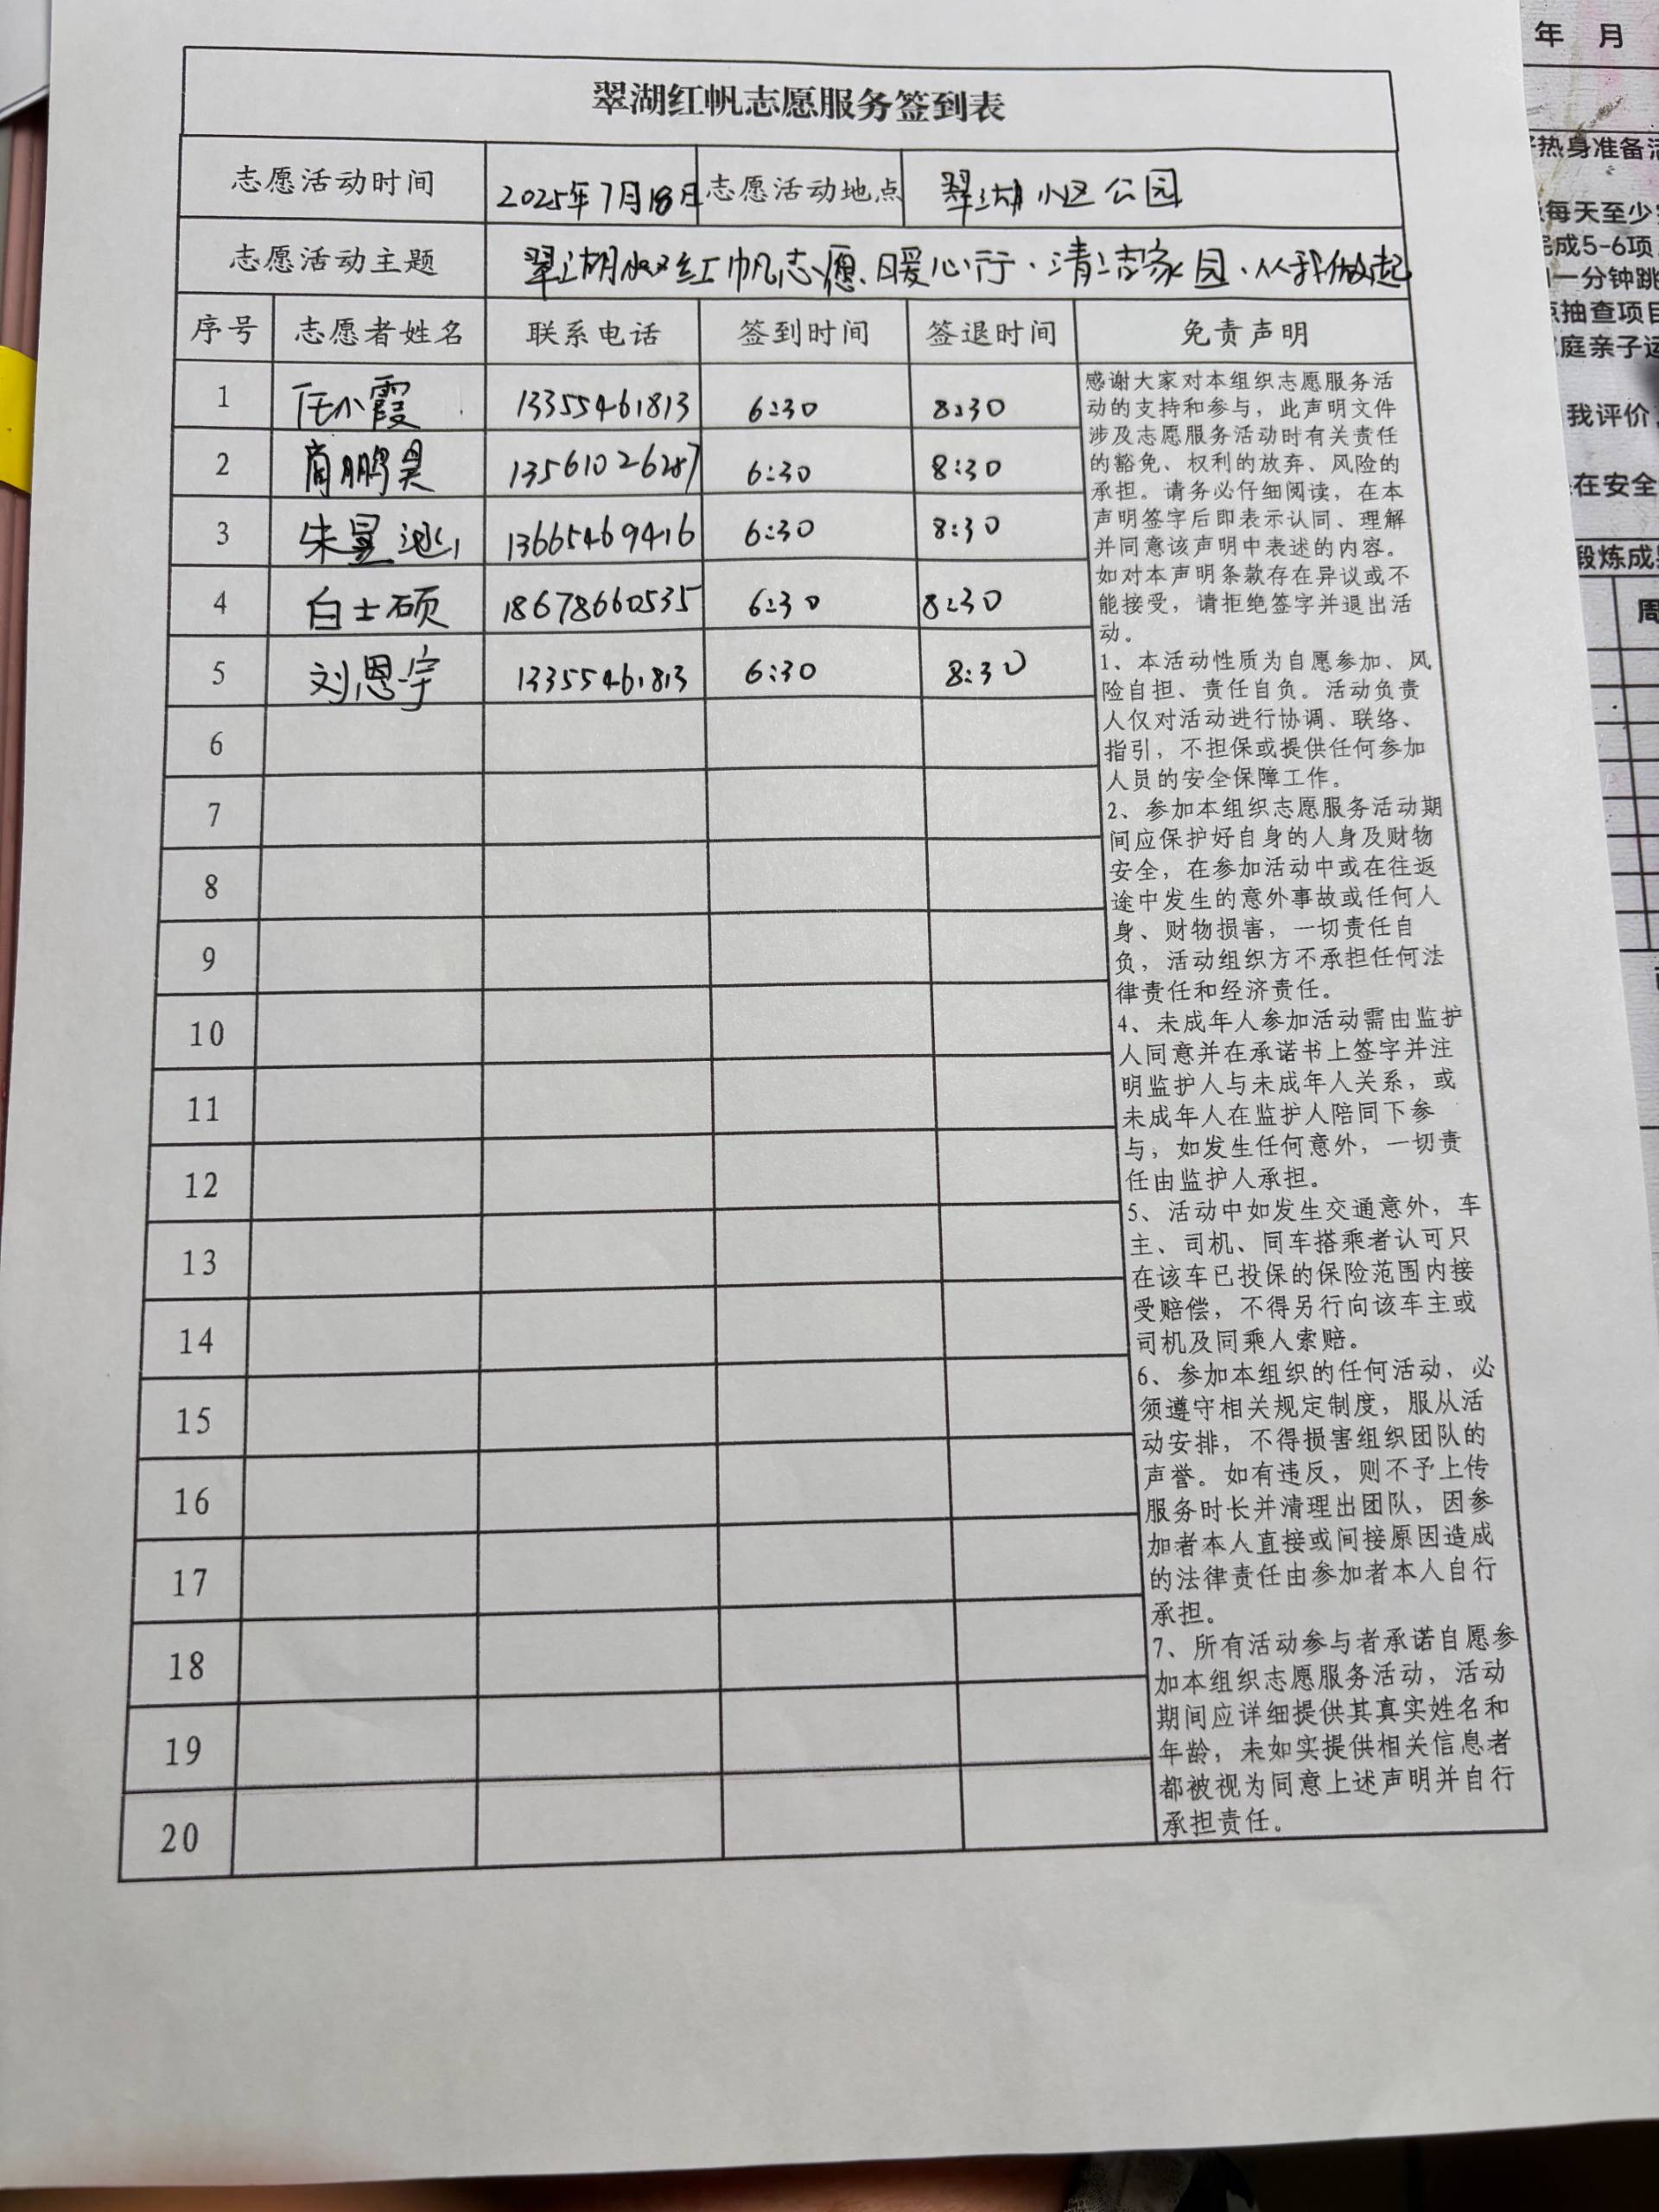 翠湖红帆志愿服务签到表
志愿活动时间 2025年7月18日 志愿活动地点 翠湖小区公园
志愿活动主题 翠湖 红帆志愿.暖心行.清洁家园.从我做起
序号 志愿者姓名 联系电话 签到时间 签退时间 免责声明
1 任小霞 13355461813 6:30 8:30
2 商鹏昊 13561026287 6:30 8:30
3 朱昱 13665469416 6:30 8:30
4 白士硕 18678660535 6:30 8:30
5 刘恩宇 13355461813 6:30 8:30
6
7
8
9
10
11
12
13
14
15
16
17
18
19
20
感谢大家对本组织志愿服务活
动的支持和参与，此声明文件
涉及志愿服务活动时有关责任
的豁免、权利的放弃、风险的
承担。请务必仔细阅读，在本
声明签字后即表示认同、理解
并同意该声明中表述的内容。
如对本声明条款存在异议或不
能接受，请拒绝签字并退出活
动。
1、本活动性质为自愿参加、风
险自担、责任自负。活动负责
人仅对活动进行协调、联络、
指引，不担保或提供任何参加
人员的安全保障工作。
2、参加本组织志愿服务活动期
间应保护好自身的人身及财物
安全，在参加活动中或在往返
途中发生的意外事故或任何人
身、财物损害，一切责任自
负，活动组织方不承担任何法
律责任和经济责任。
4、未成年人参加活动需由监护
人同意并在承诺书上签字并注
明监护人与未成年人关系，或
未成年人在监护人陪同下参
与，如发生任何意外，一切责
任由监护人承担。
5、活动中如发生交通意外，车
主、司机、同车搭乘者认可只
在该车已投保的保险范围内接
受赔偿，不得另行向该车主或
司机及同乘人索赔。
6、参加本组织的任何活动，必
须遵守相关规定制度，服从活
动安排，不得损害组织团队的
声誉。如有违反，则不予上传
服务时长并清理出团队，因参
加者本人直接或间接原因造成
的法律责任由参加者本人自行
承担。
7、所有活动参与者承诺自愿参
加本组织志愿服务活动，活动
期间应详细提供其真实姓名和
年龄，未如实提供相关信息者
都被视为同意上述声明并自行
承担责任。
年 月
热身准备活
每天至少
完成5-6项
一分钟跳
抽查项目
庭亲子运
我评价
在安全
锻炼成果
周